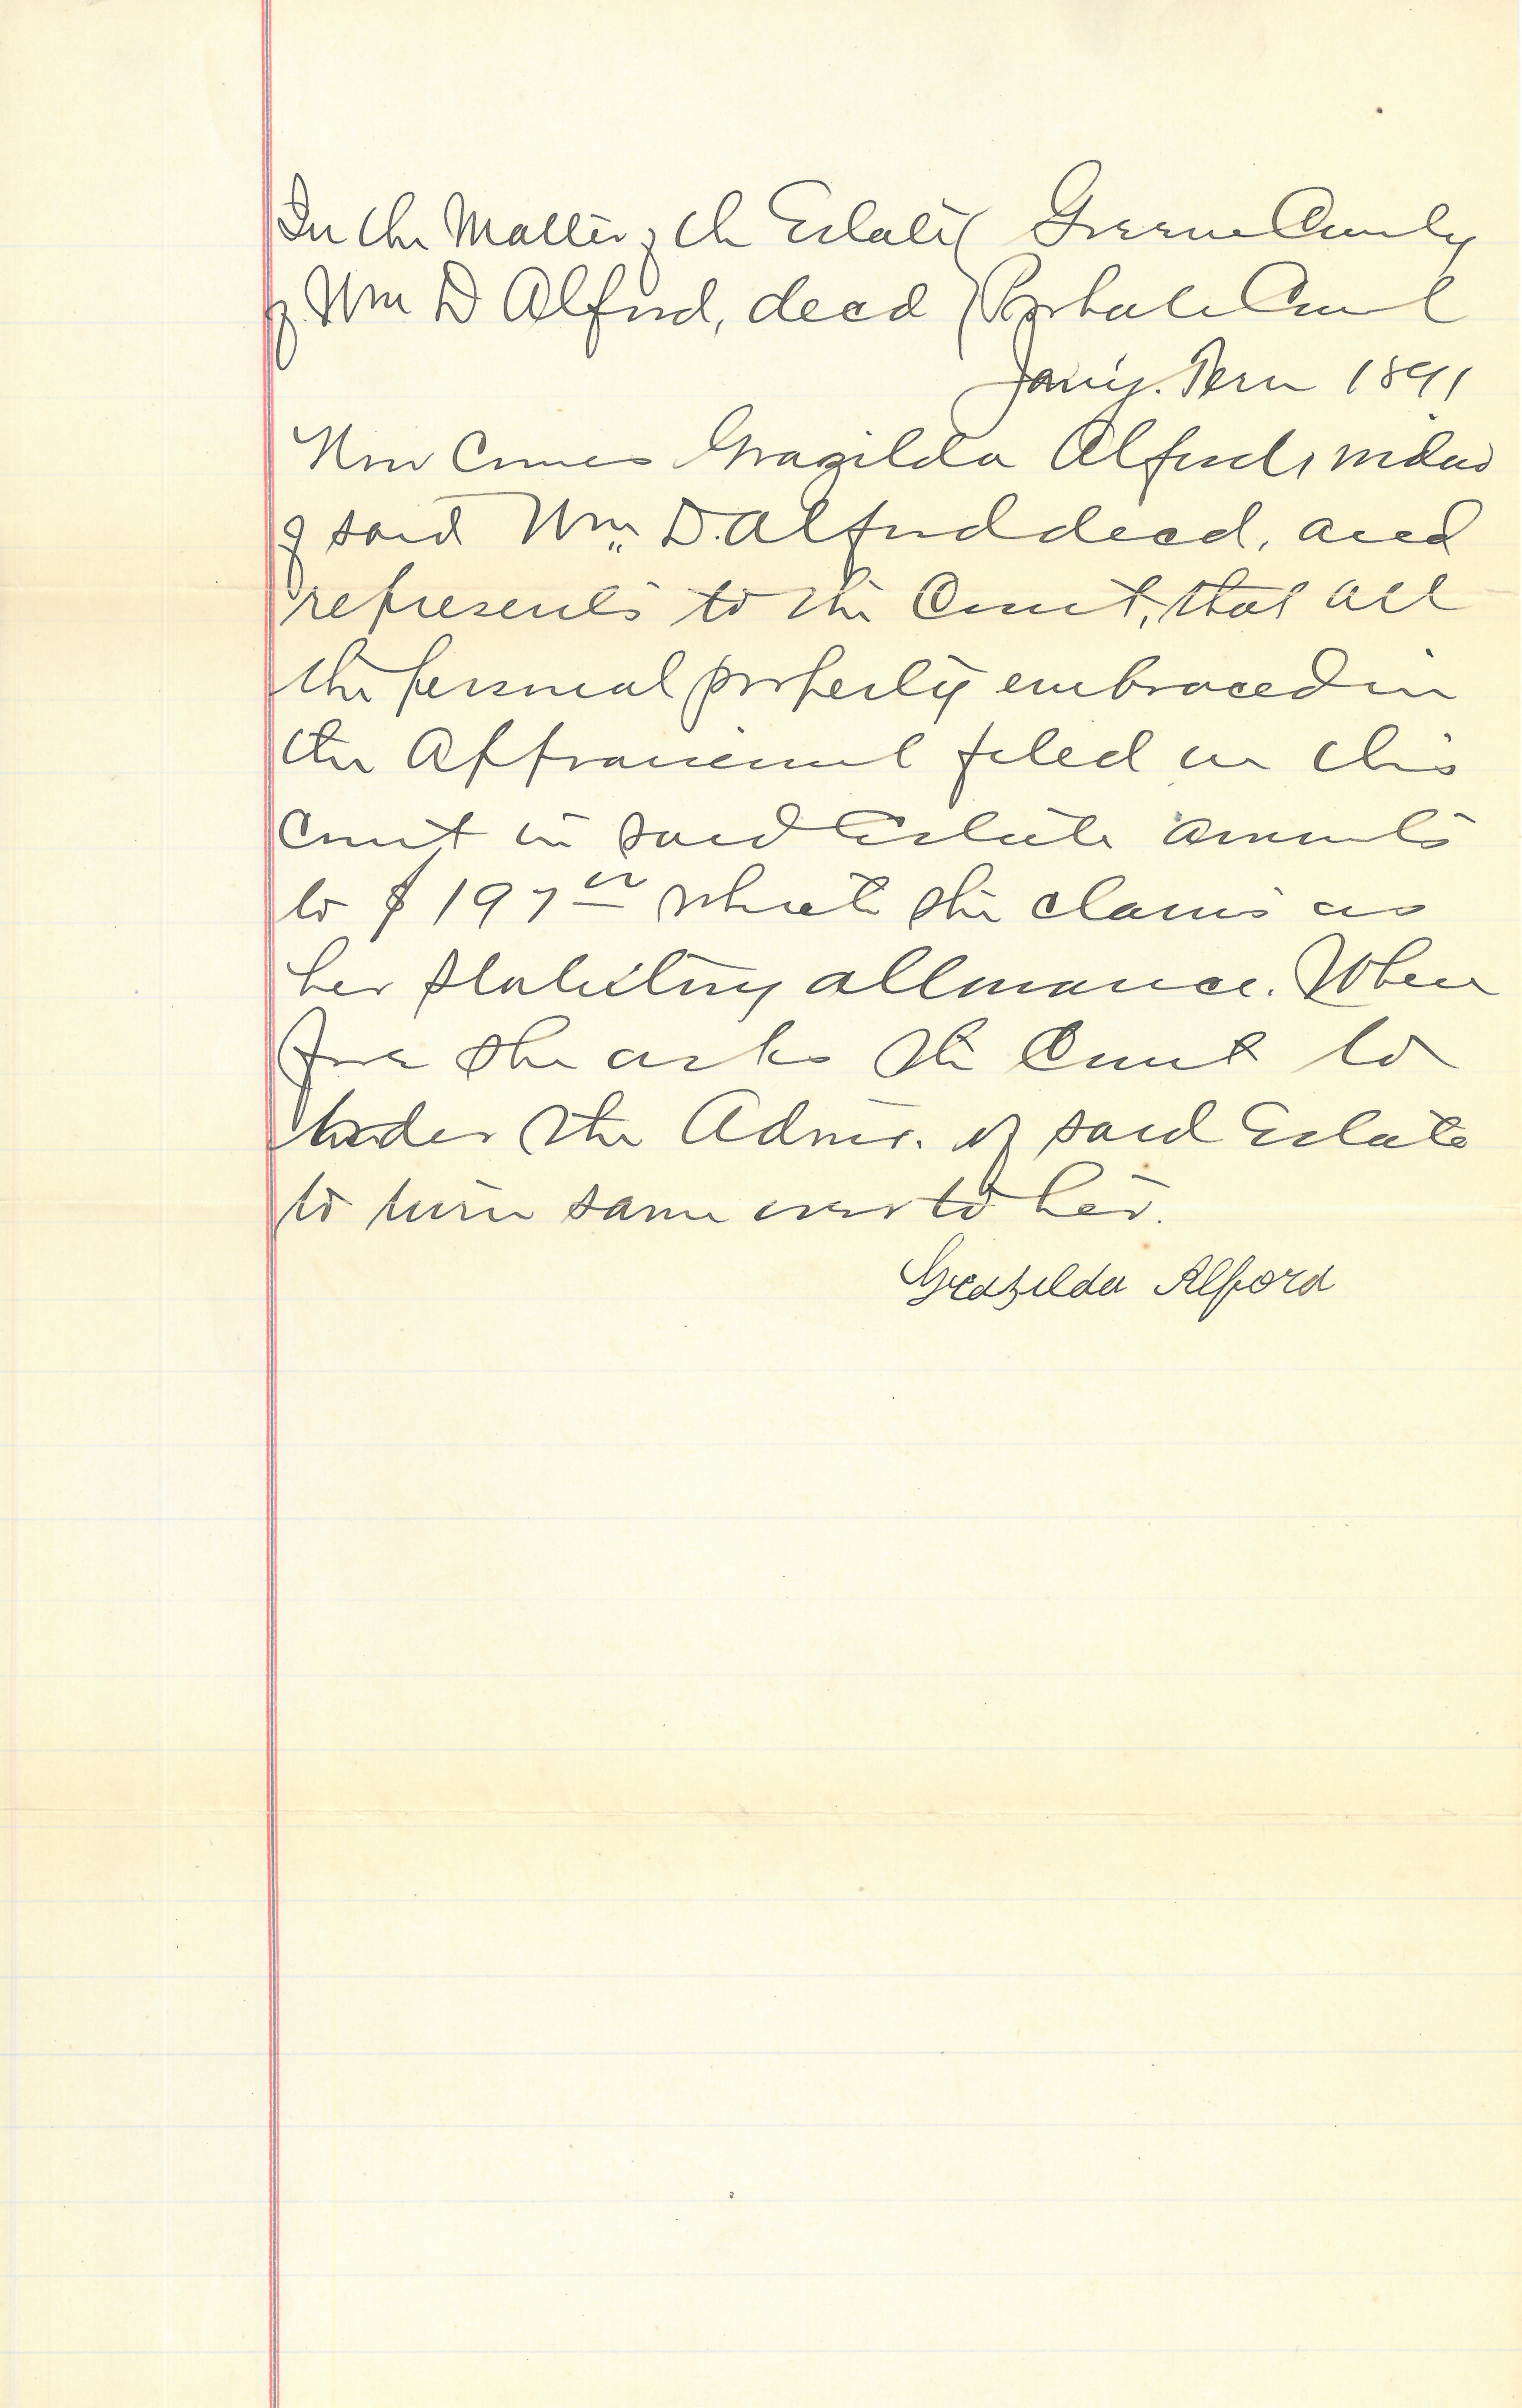 In the Matter of the Estate ( Greene County
of Wm D Alford, decd ) Probate Court
Jan'y. Term 1891
Now Comes Grazilda Alford, widow
of said Wm. D. Alford decd, and
represents to the Court, that all
the personal property embraced in
the Appraisement filed in this
Court in said Estate amounts
to $197 00 which she claims as
her Statutory allowance. Where
fore she asks the Court to
order the Admr. of said Estate
to turn same over to her.
Grazilda Alford